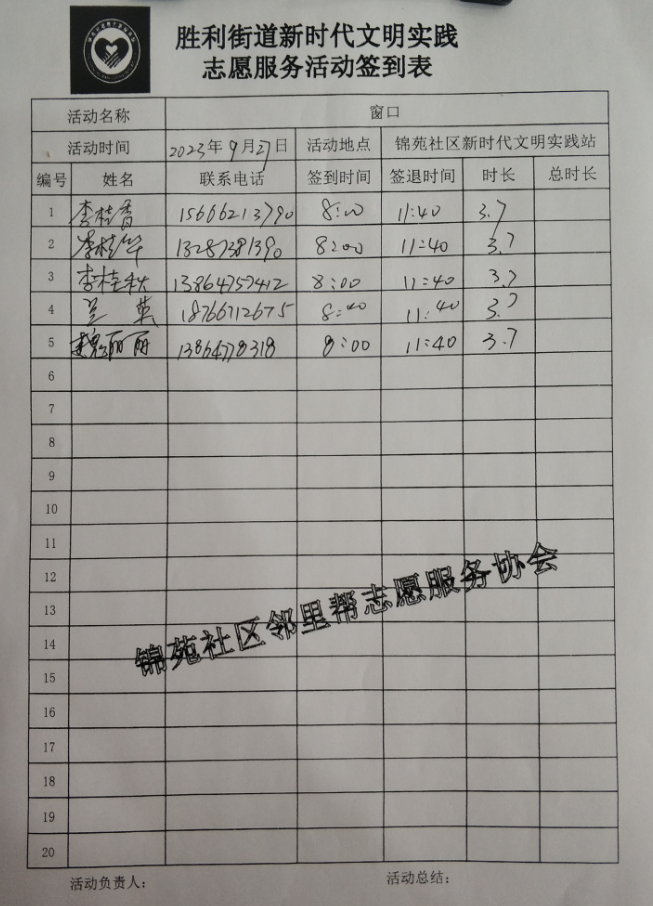 胜利街道新时代文明实践
志愿服务活动签到表
活动名称 窗口
活动时间 2023年9月27日 活动地点 锦苑社区新时代文明实践站
编号 姓名 联系电话 签到时间 签退时间 时长 总时长
1 李桂香 15666213790 8:00 11:40 3.7
2 李桂华 13287381390 8:00 11:40 3.7
3 李桂秋 13864757412 8:00 11:40 3.7
4 兰英 18766712675 8:00 11:40 3.7
5 魏丽丽 13864778318 8:00 11:40 3.7
6
7
8
9
10
11
12
13
14
15
16
17
18
19
20
锦苑社区邻里帮志愿服务协会
活动负责人： 活动总结：